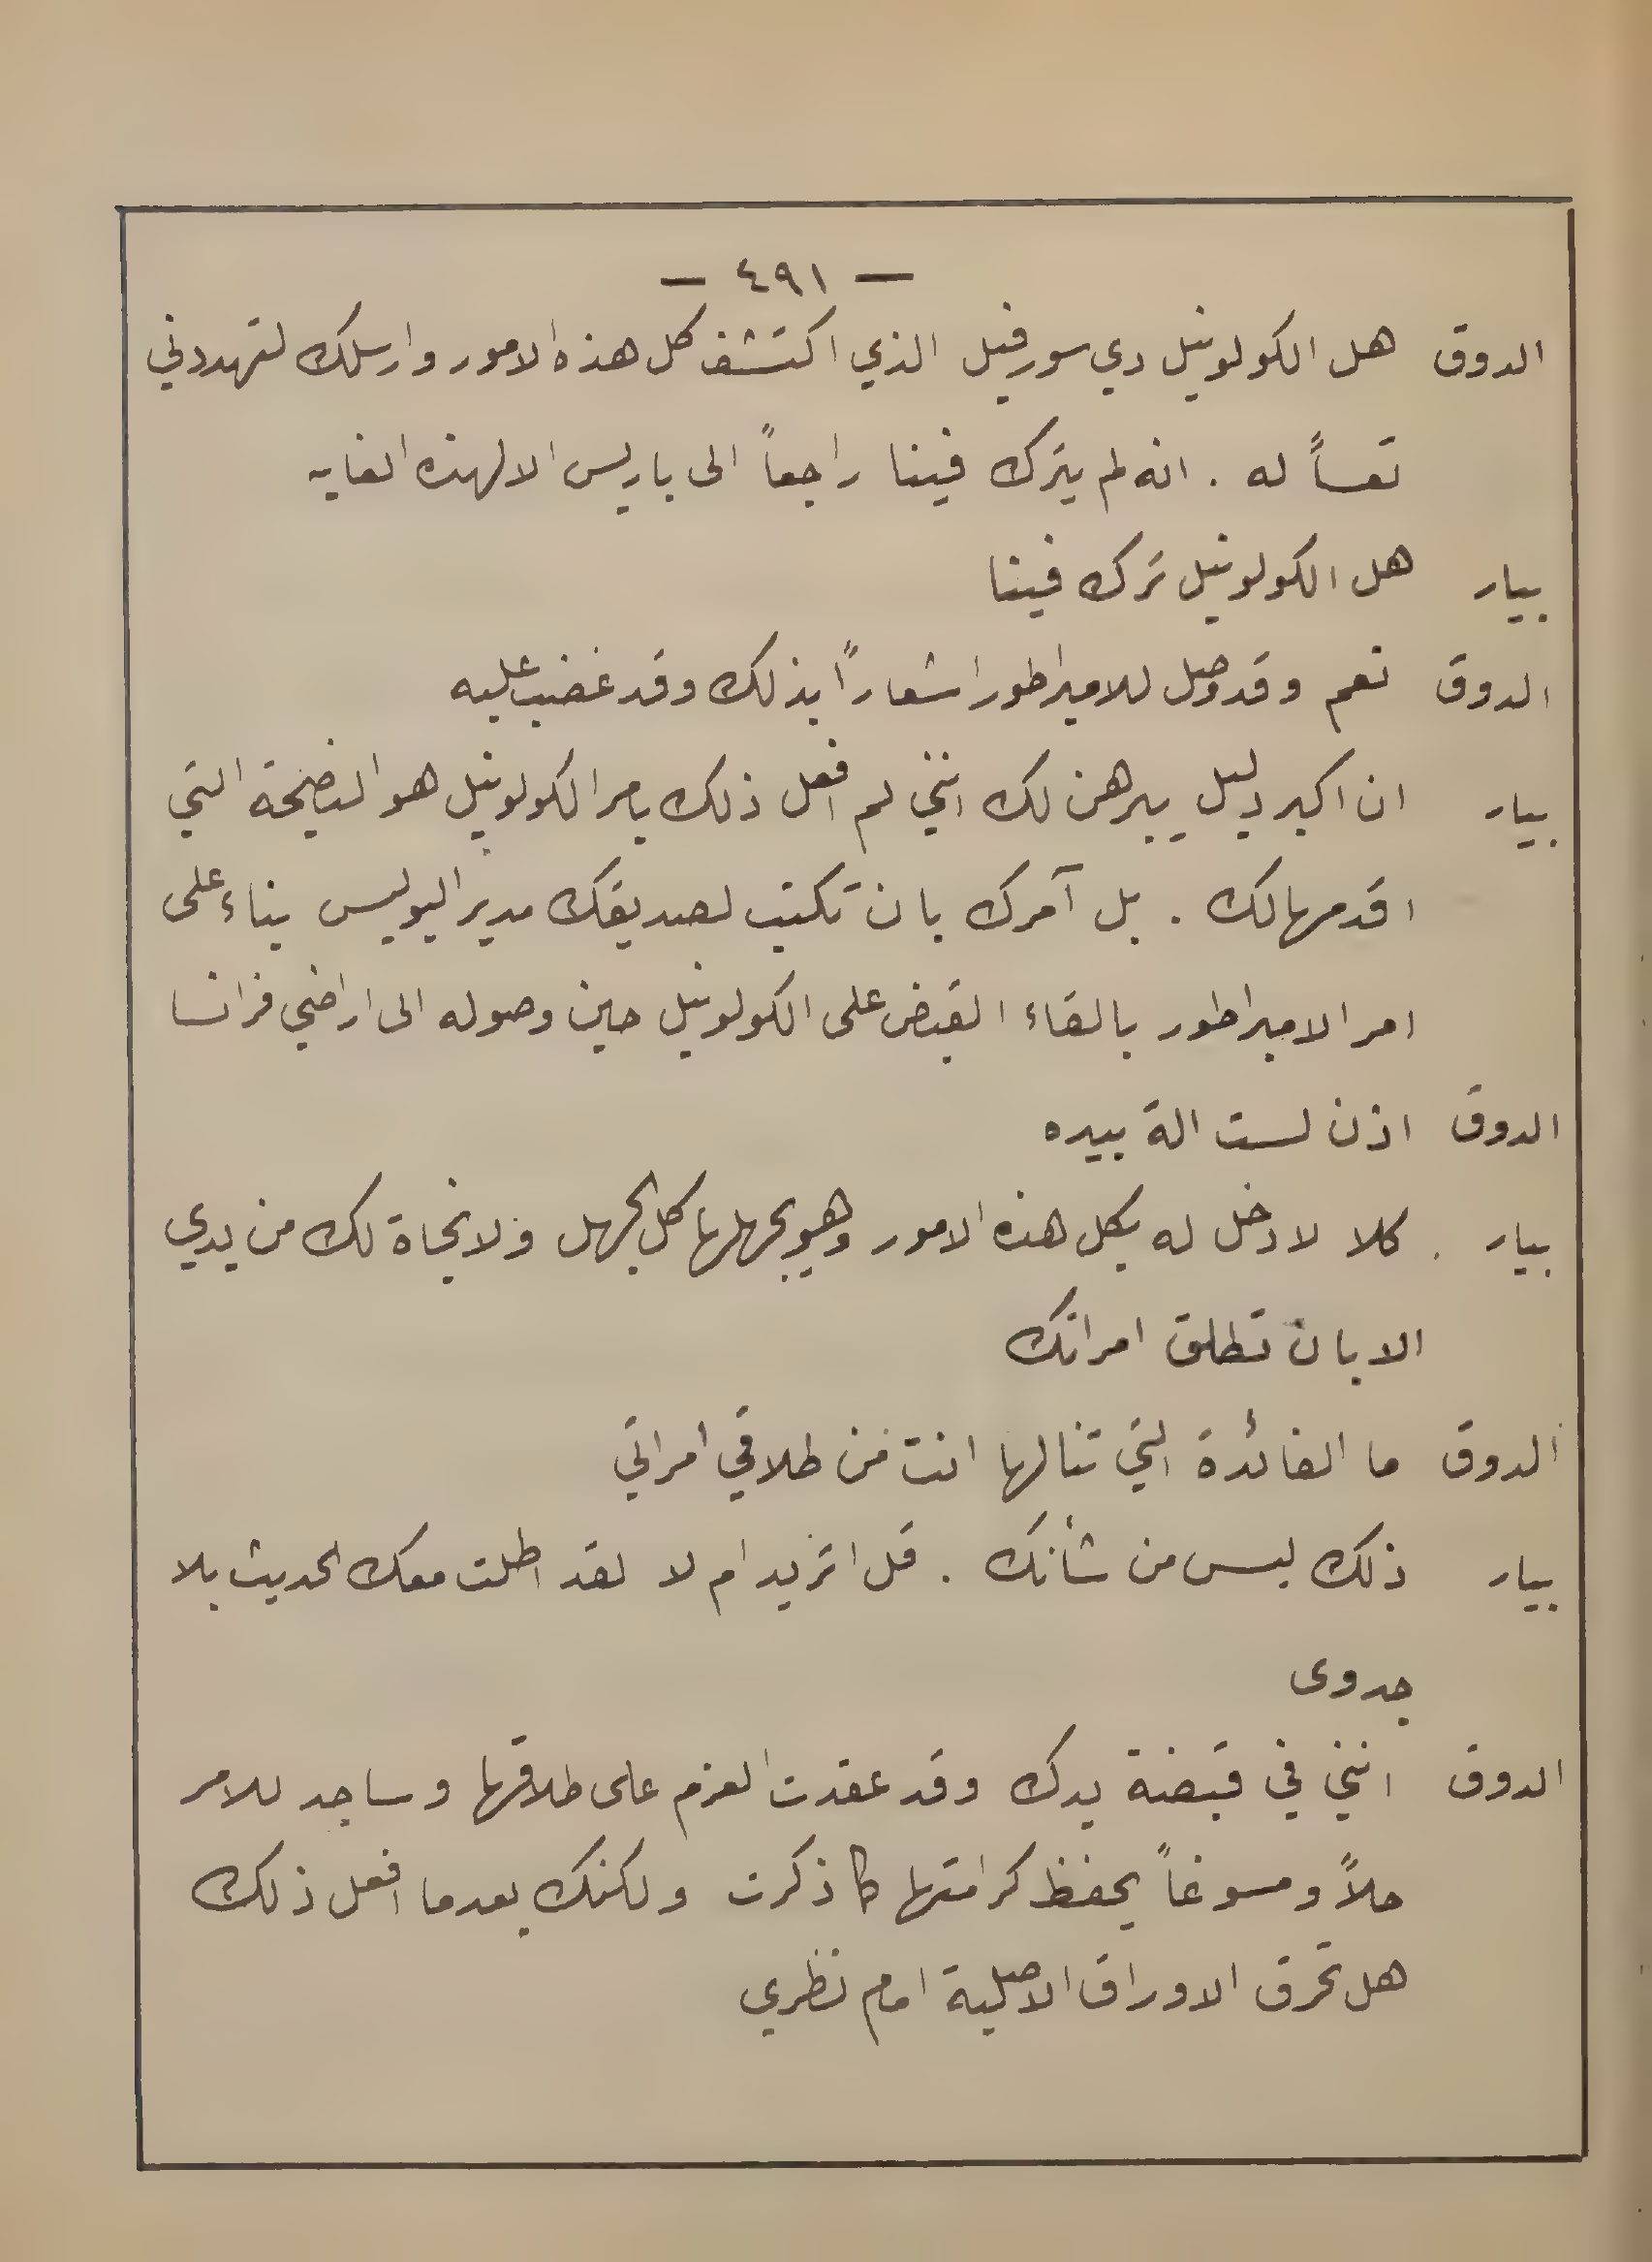 — ٤٩١ —
الدوق هل الكولونيل دي سورفيل الذي اكتشف كل هذه الامور وارسلك لتهددني
تعساً له . انه لم يترك فينا راجعاً الى باريس الا لهذه الغايه
بيار هل الكولونيل ترك فينا
الدوق نعم وقد وصل للامبراطور اشعاراً بذلك وقد غضب عليه
بيار ان اكبر دليل يبرهن لك انني لم افعل ذلك بامر الكولونيل هو النصيحة التي
اقدمها لك . بل آمرك بان تكتب لصديقك مدير البوليس بناء على
امر الامبراطور بالقاء القبض على الكولونيل حين وصوله الى اراضي فرانسا
الدوق اذن لست الة بيده
بيار . كلا لا دخل له بكل هذه الامور وهو يجهلها كل الجهل ولا نجاة لك من يدي
الا بان تطلق امراتك
الدوق ما الفائدة التي تنالها انت من طلاقي امراتي
بيار ذلك ليس من شأنك . قل اتريد ام لا لقد اطلت معك الحديث بلا
جدوى
الدوق انني في قبضة يدك وقد عقدت العزم على طلاقها وساجد للامر
حلاً ومسوغاً يحفظ كرامتها كما ذكرت ولكنك بعدما افعل ذلك
هل تحرق الاوراق الاصلية امام نظري